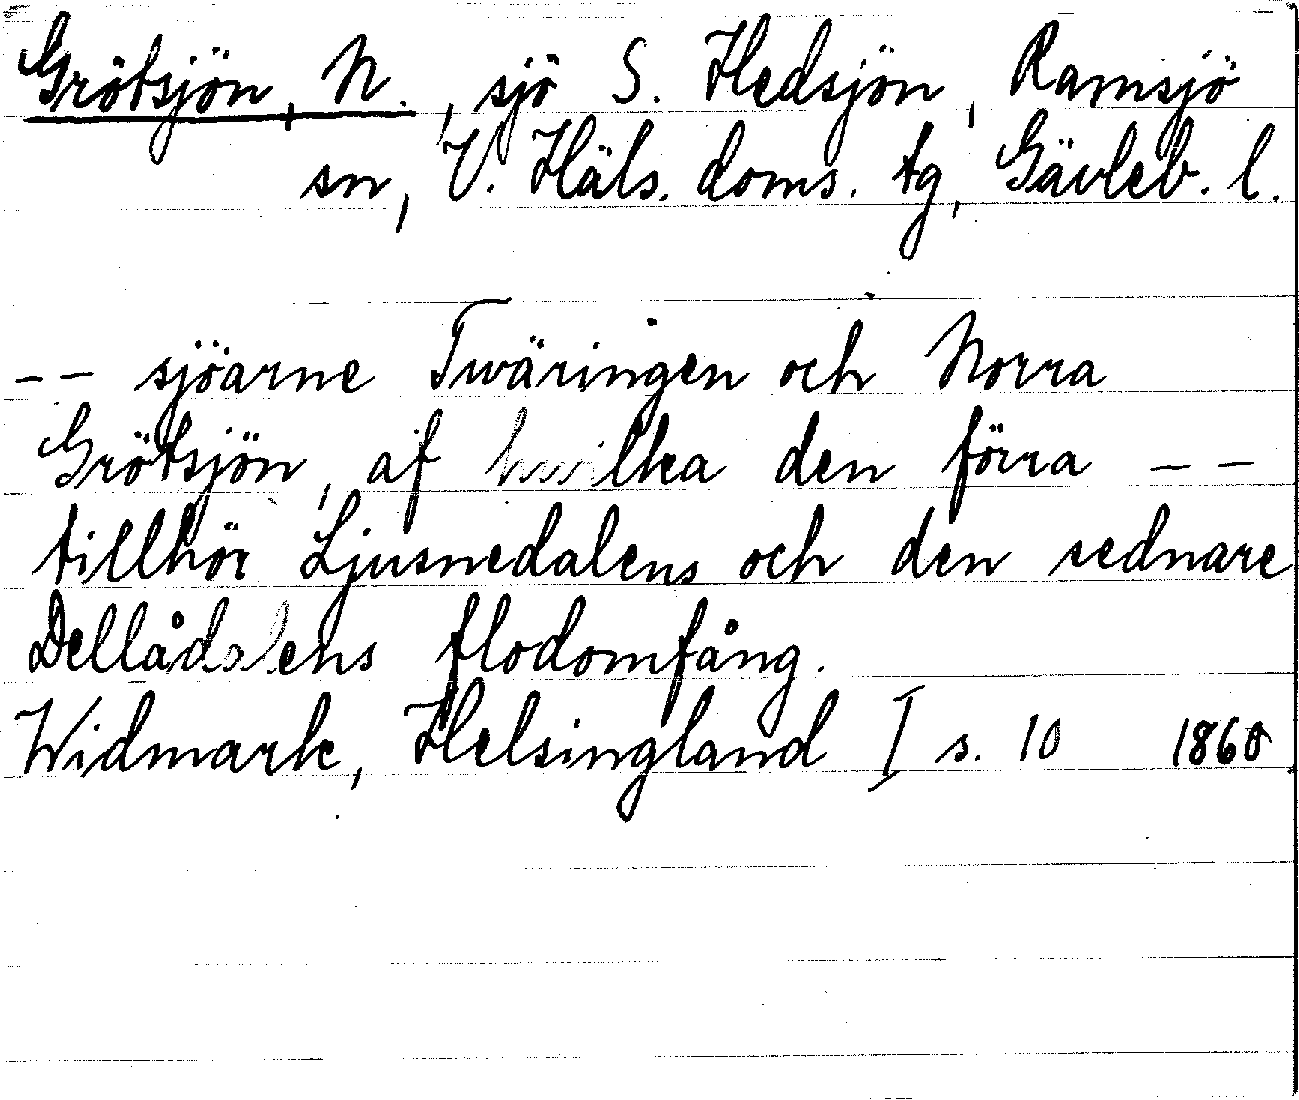 Grötsjön, N., sjö S. Hedsjön, Ramsjö
sn, V. Häls. doms. tg, Gävleb. l.
-- sjöarne Twäringen och Norra
Grötsjön, af hwilka den förra --
tillhör Ljusnedalens och den sednare
Dellådalens flodomfång.
Widmark, Helsingland I s. 10 1860